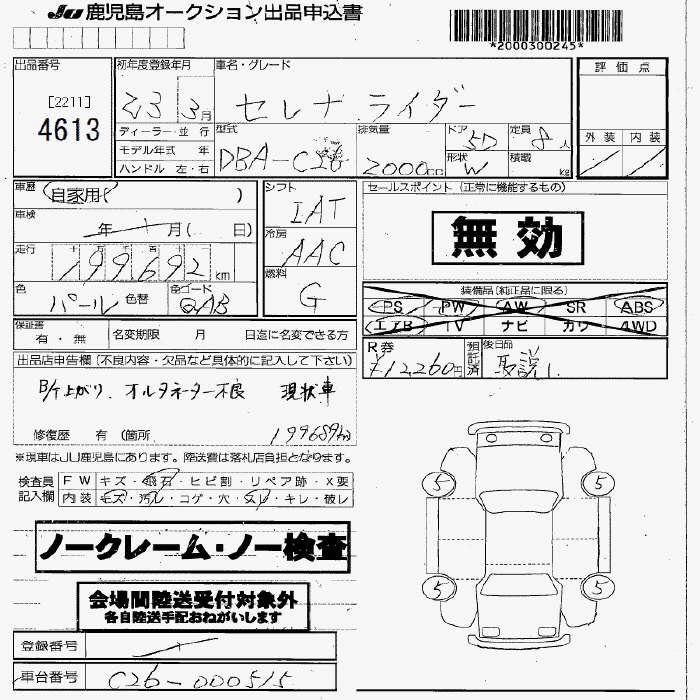 JU 鹿児島オークション出品申込書
*2000300245*
出品番号 初年度登録年月 車名・グレード 評価点
[2211]
4613
23 3月 セレナ ライダー
ディーラー・並行 型式 排気量 ドア 定員 外装 内装
モデル年式 年 DBA-C26 2000cc 5D 8人
ハンドル 左・右 形状 W 積載 kg
車歴 自家用( ) シフト IAT セールスポイント (正常に機能するもの)
車検 年 月( 日) 冷房 AAC 無効
走行 十万 万 千 百 十 一
199692km
燃料 G
色 パール 色替 色コード QAB
装備品(純正品に限る)
PS PW AW SR ABS
エアB TV ナビ カワ 4WD
保証書 有・無 名変期限 月 日迄に名変できる方
R券 ¥12,260円 預託済 後日品 取説1
出品店申告欄(不良内容・欠品など具体的に記入して下さい)
B/ケ上がり、オルタネーター不良 現状車
修復歴 有 (箇所 199689km
※現車はJU鹿児島にあります。陸送費は落札店負担となります。
検査員記入欄 FW キズ・飛石・ヒビ割・リペア跡・X要
内装 キズ・汚レ・コゲ・穴・スレ・キレ・破レ
5 5
ノークレーム・ノー検査
5 5
会場間陸送受付対象外
各自陸送手配おねがいします
登録番号
車台番号 C26-000515